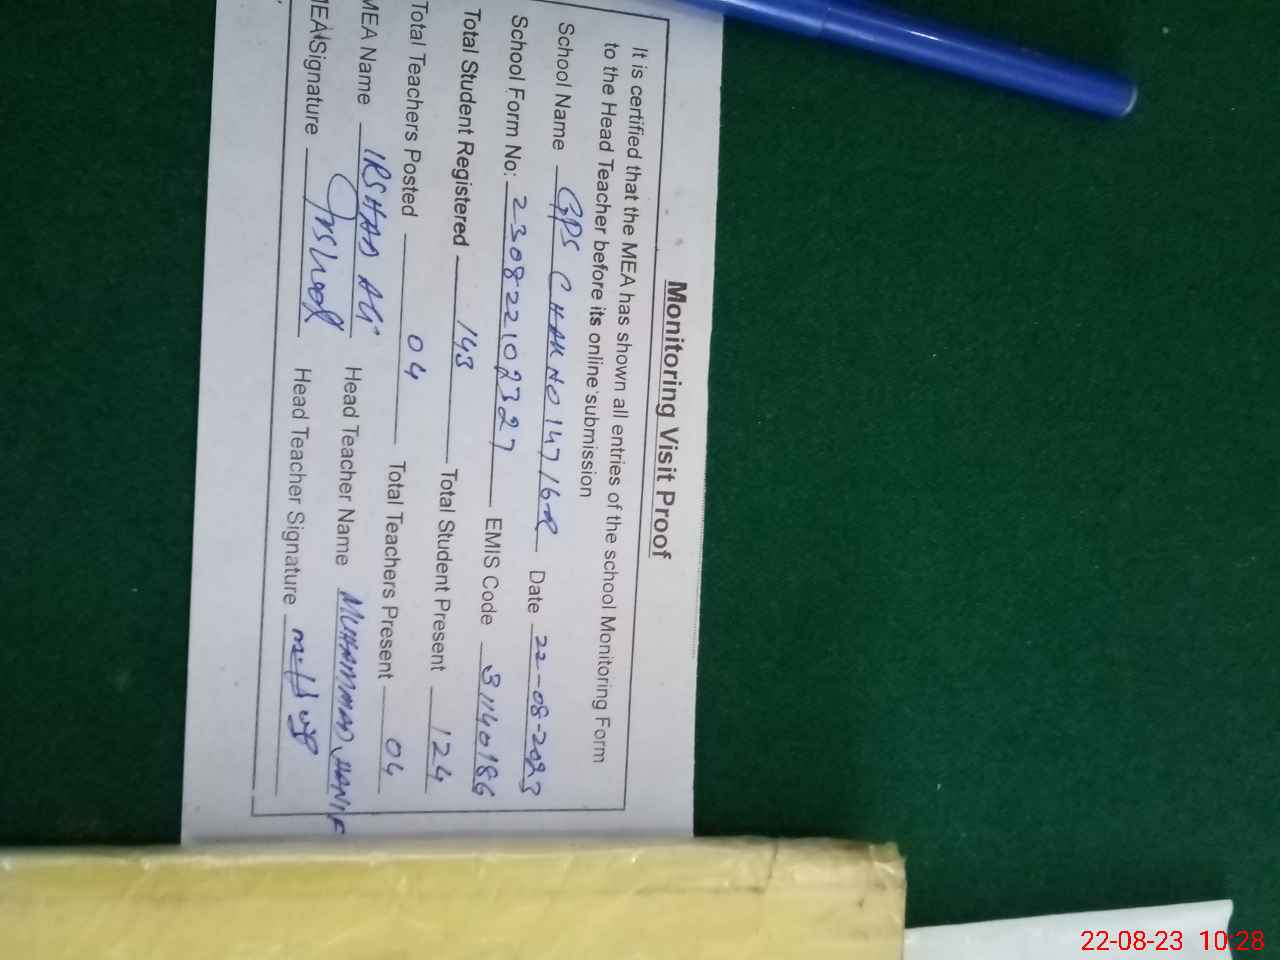 Monitoring Visit Proof
It is certified that the MEA has shown all entries of the school Monitoring Form
to the Head Teacher before its online submission
School Name GPS CHAK NO 147/6R Date 22-08-2023
School Form No: 230822102327 EMIS Code 31140186
Total Student Registered 143 Total Student Present 124
Total Teachers Posted 04 Total Teachers Present 04
MEA Name IRSHAD ALI Head Teacher Name MUHAMMAD HANIF
MEA Signature Irshad Head Teacher Signature
22-08-23 10:28